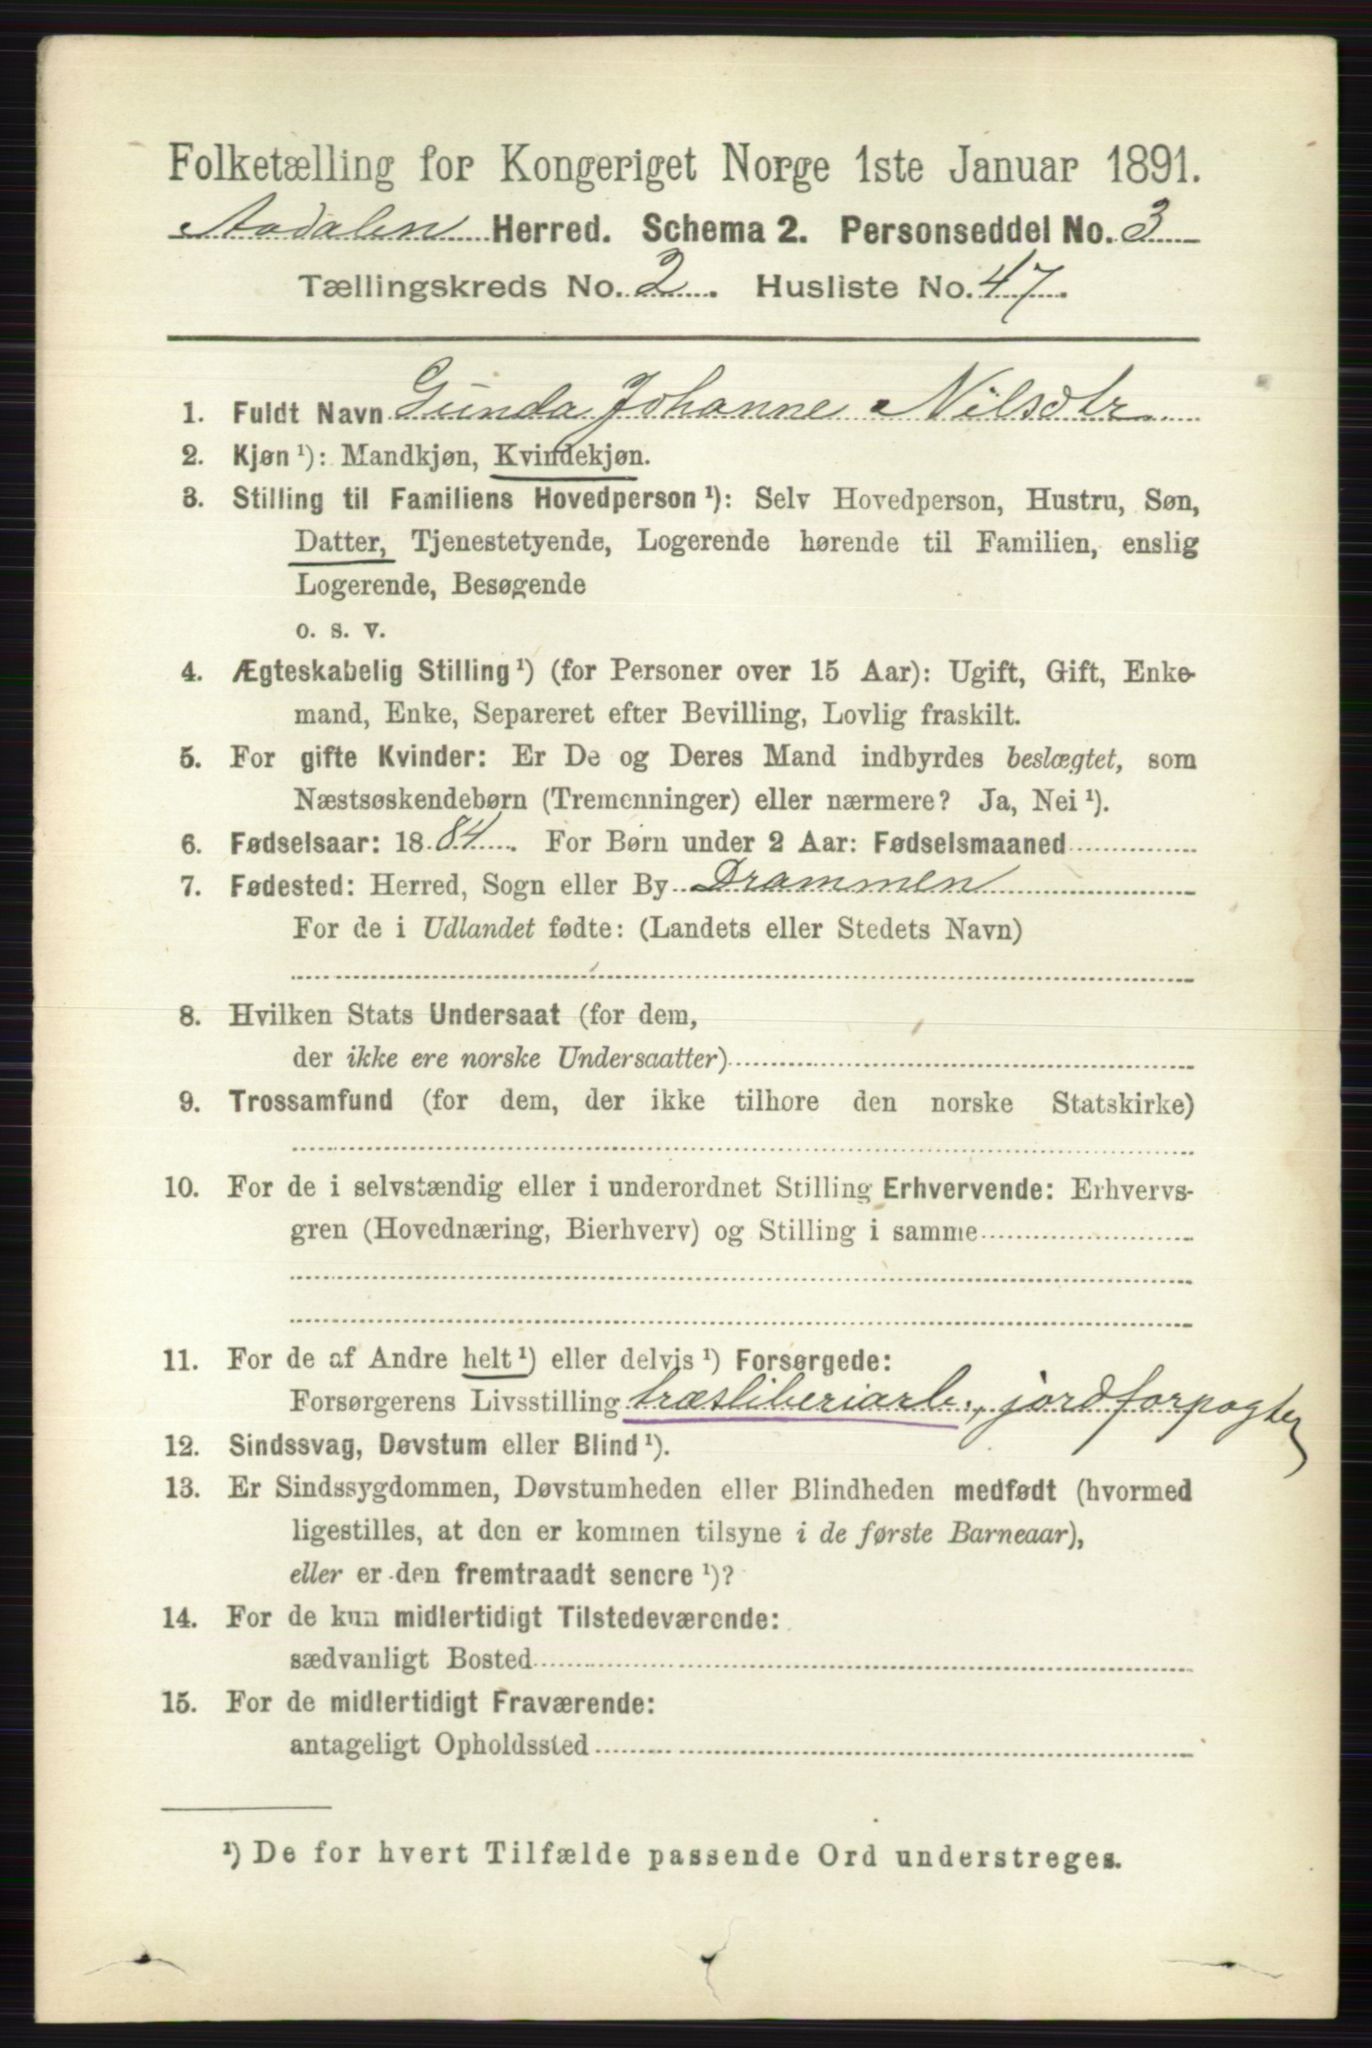 Folketælling for Kongeriget Norge 1ste Januar 1891.
Aadalen Herred. Schema 2. Personseddel No. 3
Tællingskreds No. 2. Husliste No. 47.
1. Fuldt Navn Gunda Johanne Nilsdtr
2. Kjøn ¹): Mandkjøn, Kvindekjøn.
3. Stilling til Familiens Hovedperson ¹): Selv Hovedperson, Hustru, Søn,
Datter, Tjenestetyende, Logerende hørende til Familien, enslig
Logerende, Besøgende
o. s. v.
4. Ægteskabelig Stilling ¹) (for Personer over 15 Aar): Ugift, Gift, Enke-
mand, Enke, Separeret efter Bevilling, Lovlig fraskilt.
5. For gifte Kvinder: Er De og Deres Mand indbyrdes beslægtet, som
Næstsøskendebørn (Tremenninger) eller nærmere? Ja, Nei ¹).
6. Fødselsaar: 1884. For Børn under 2 Aar: Fødselsmaaned
7. Fødested: Herred, Sogn eller By Drammen
For de i Udlandet fødte: (Landets eller Stedets Navn)
8. Hvilken Stats Undersaat (for dem,
der ikke ere norske Undersaatter)
9. Trossamfund (for dem, der ikke tilhøre den norske Statskirke)
10. For de i selvstændig eller i underordnet Stilling Erhvervende: Erhvervs-
gren (Hovednæring, Bierhverv) og Stilling i samme
11. For de af Andre helt ¹) eller delvis ¹) Forsørgede:
Forsørgerens Livsstilling træsliberiarb., jordforpagter
12. Sindssvag, Døvstum eller Blind ¹).
13. Er Sindssygdommen, Døvstumheden eller Blindheden medfødt (hvormed
ligestilles, at den er kommen tilsyne i de første Barneaar),
eller er den fremtraadt senere ¹)?
14. For de kun midlertidigt Tilstedeværende:
sædvanligt Bosted
15. For de midlertidigt Fraværende:
antageligt Opholdssted
¹) De for hvert Tilfælde passende Ord understreges.